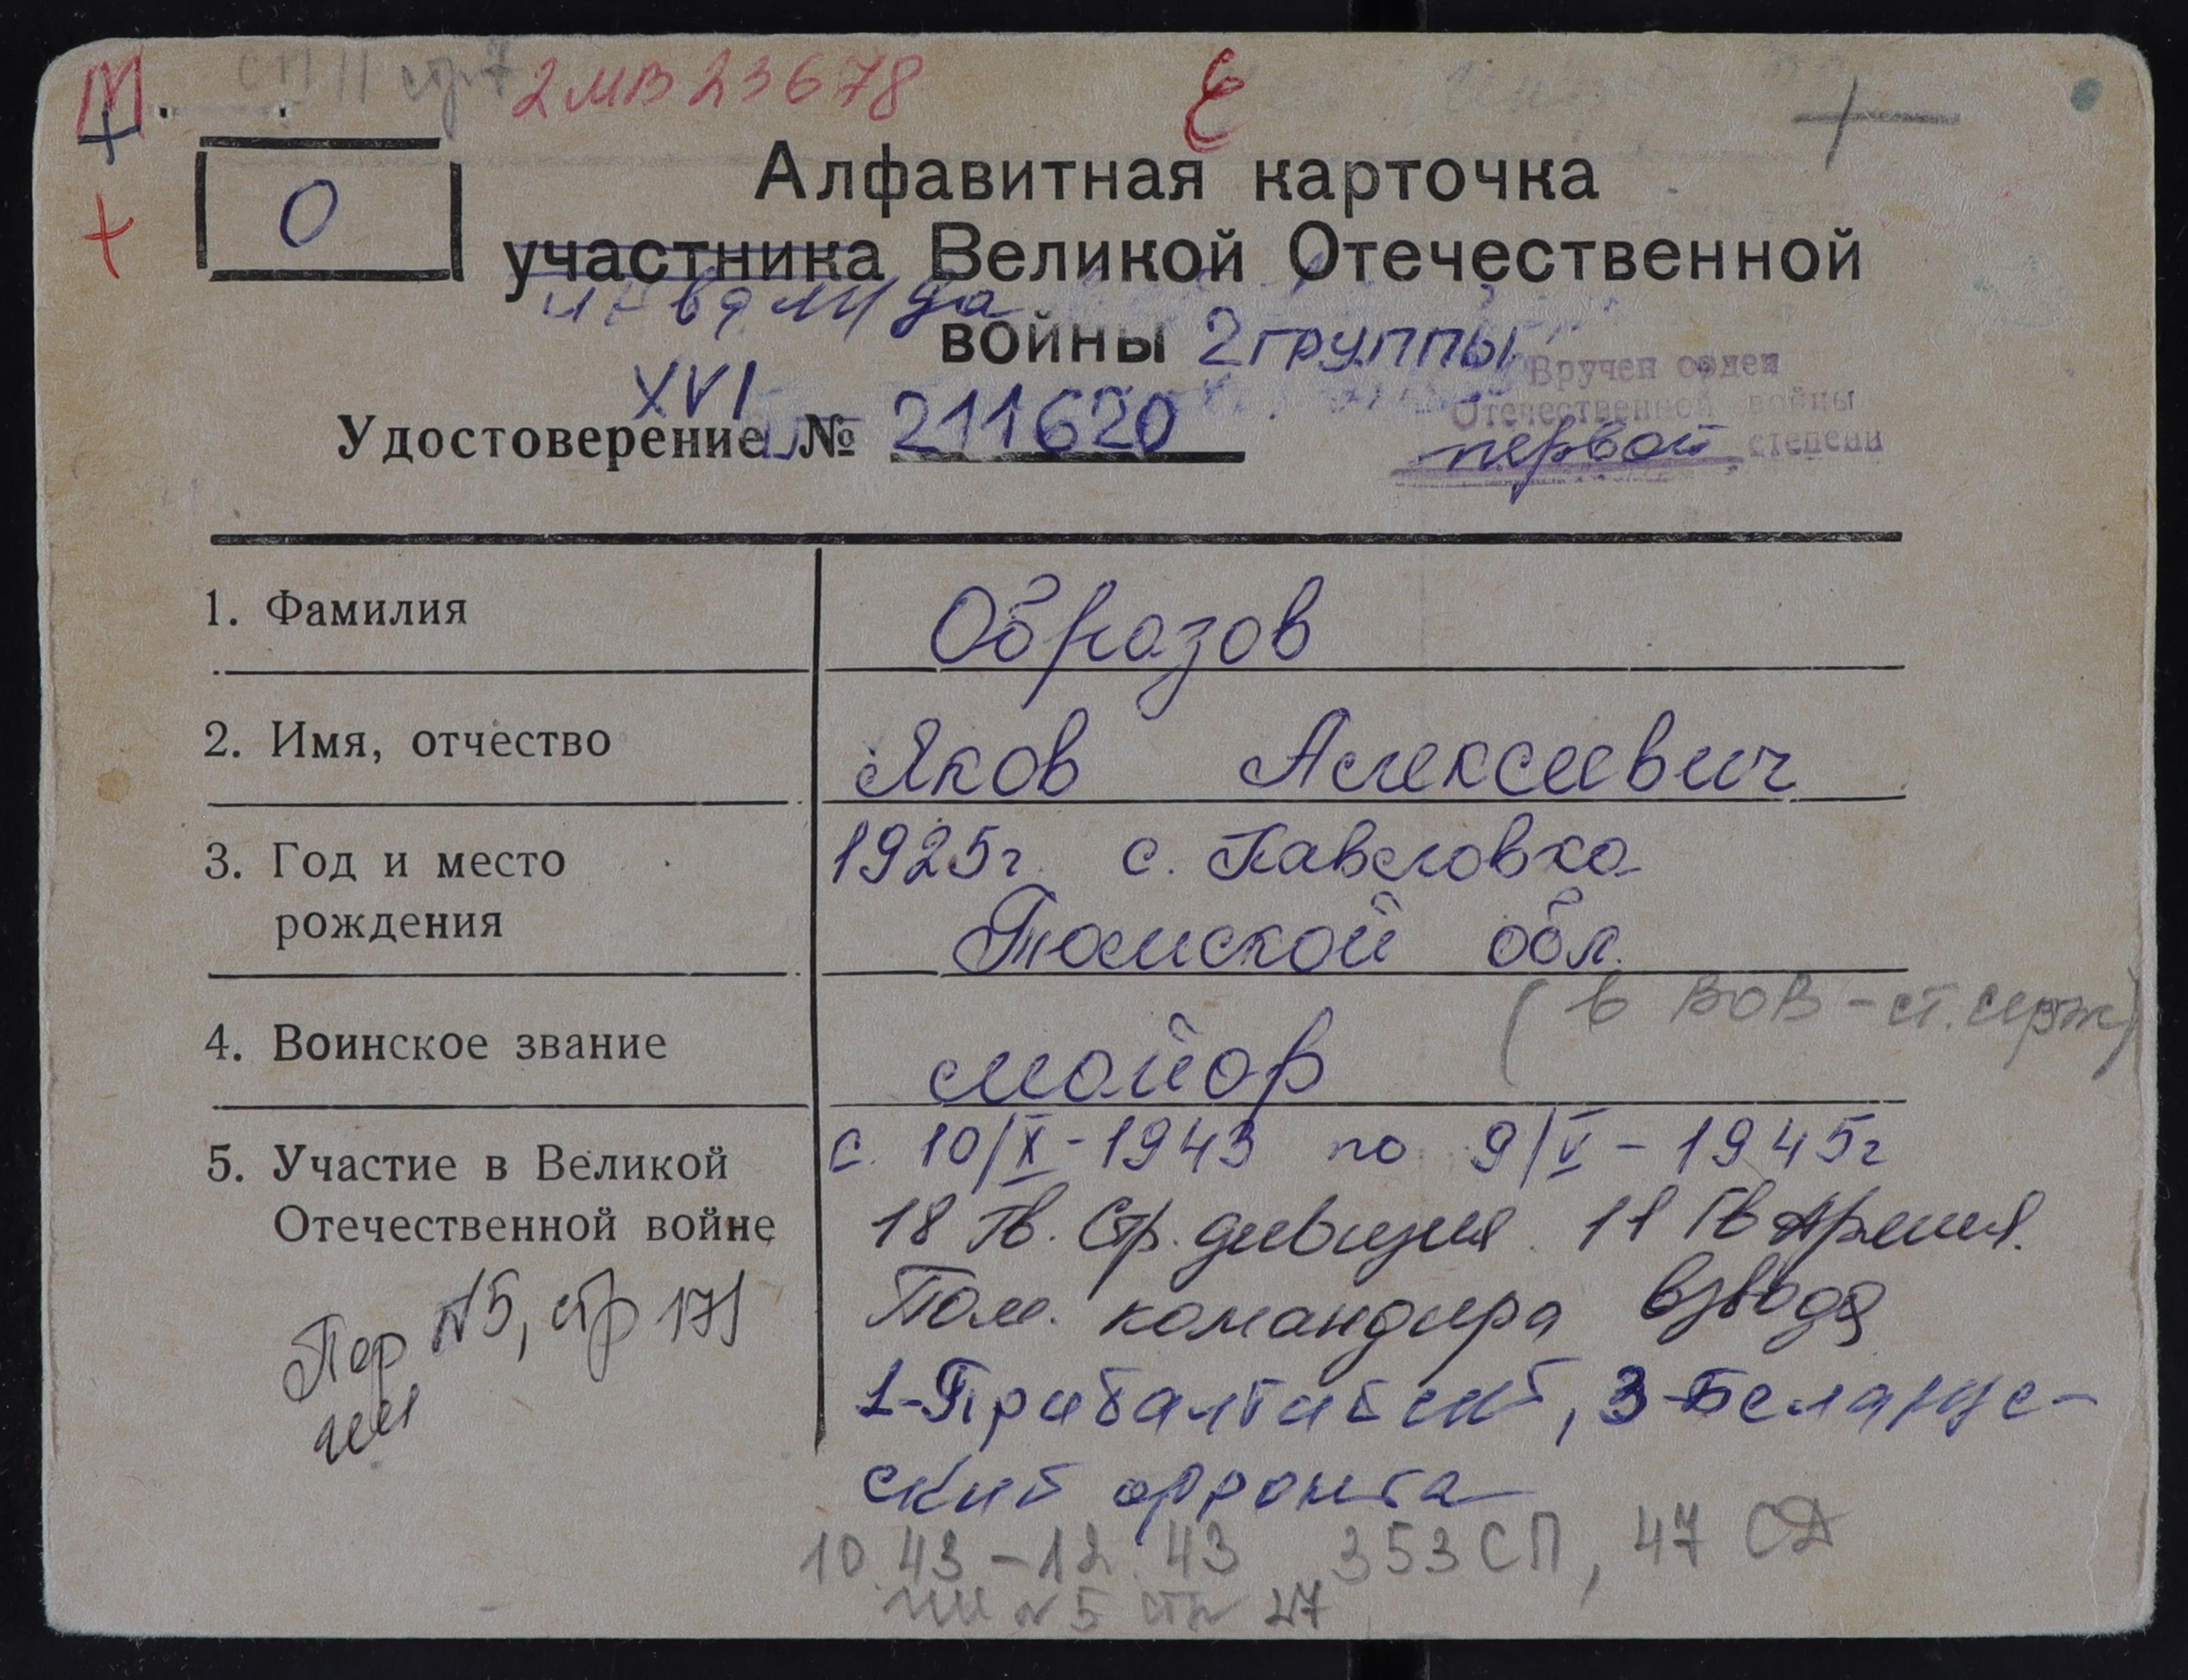 М. СП II стр 7 2МВ23678 Е
О
Алфавитная карточка
участника Великой Отечественной
инвалида
войны 2 группы
Вручен орден
Отечественной войны
первой степени
XVI
Удостоверение № 211620
1. Фамилия Образов
2. Имя, отчество Яков Алексеевич
3. Год и место 1925г. с. Павловка
рождения Томской обл.
(в ВОВ - ст. серж)
4. Воинское звание майор
5. Участие в Великой с 10/X - 1943 по 9/V - 1945г
Отечественной войне 18 Гв. Стр. дивизия. 11 Гв Армия.
Пом. командира взвода
Пер №5, стр 171
1-Прибалтийский, 3-Белорус-
ский фронта
10.43 - 12.43 353 СП, 47 СД
№5 стр 27